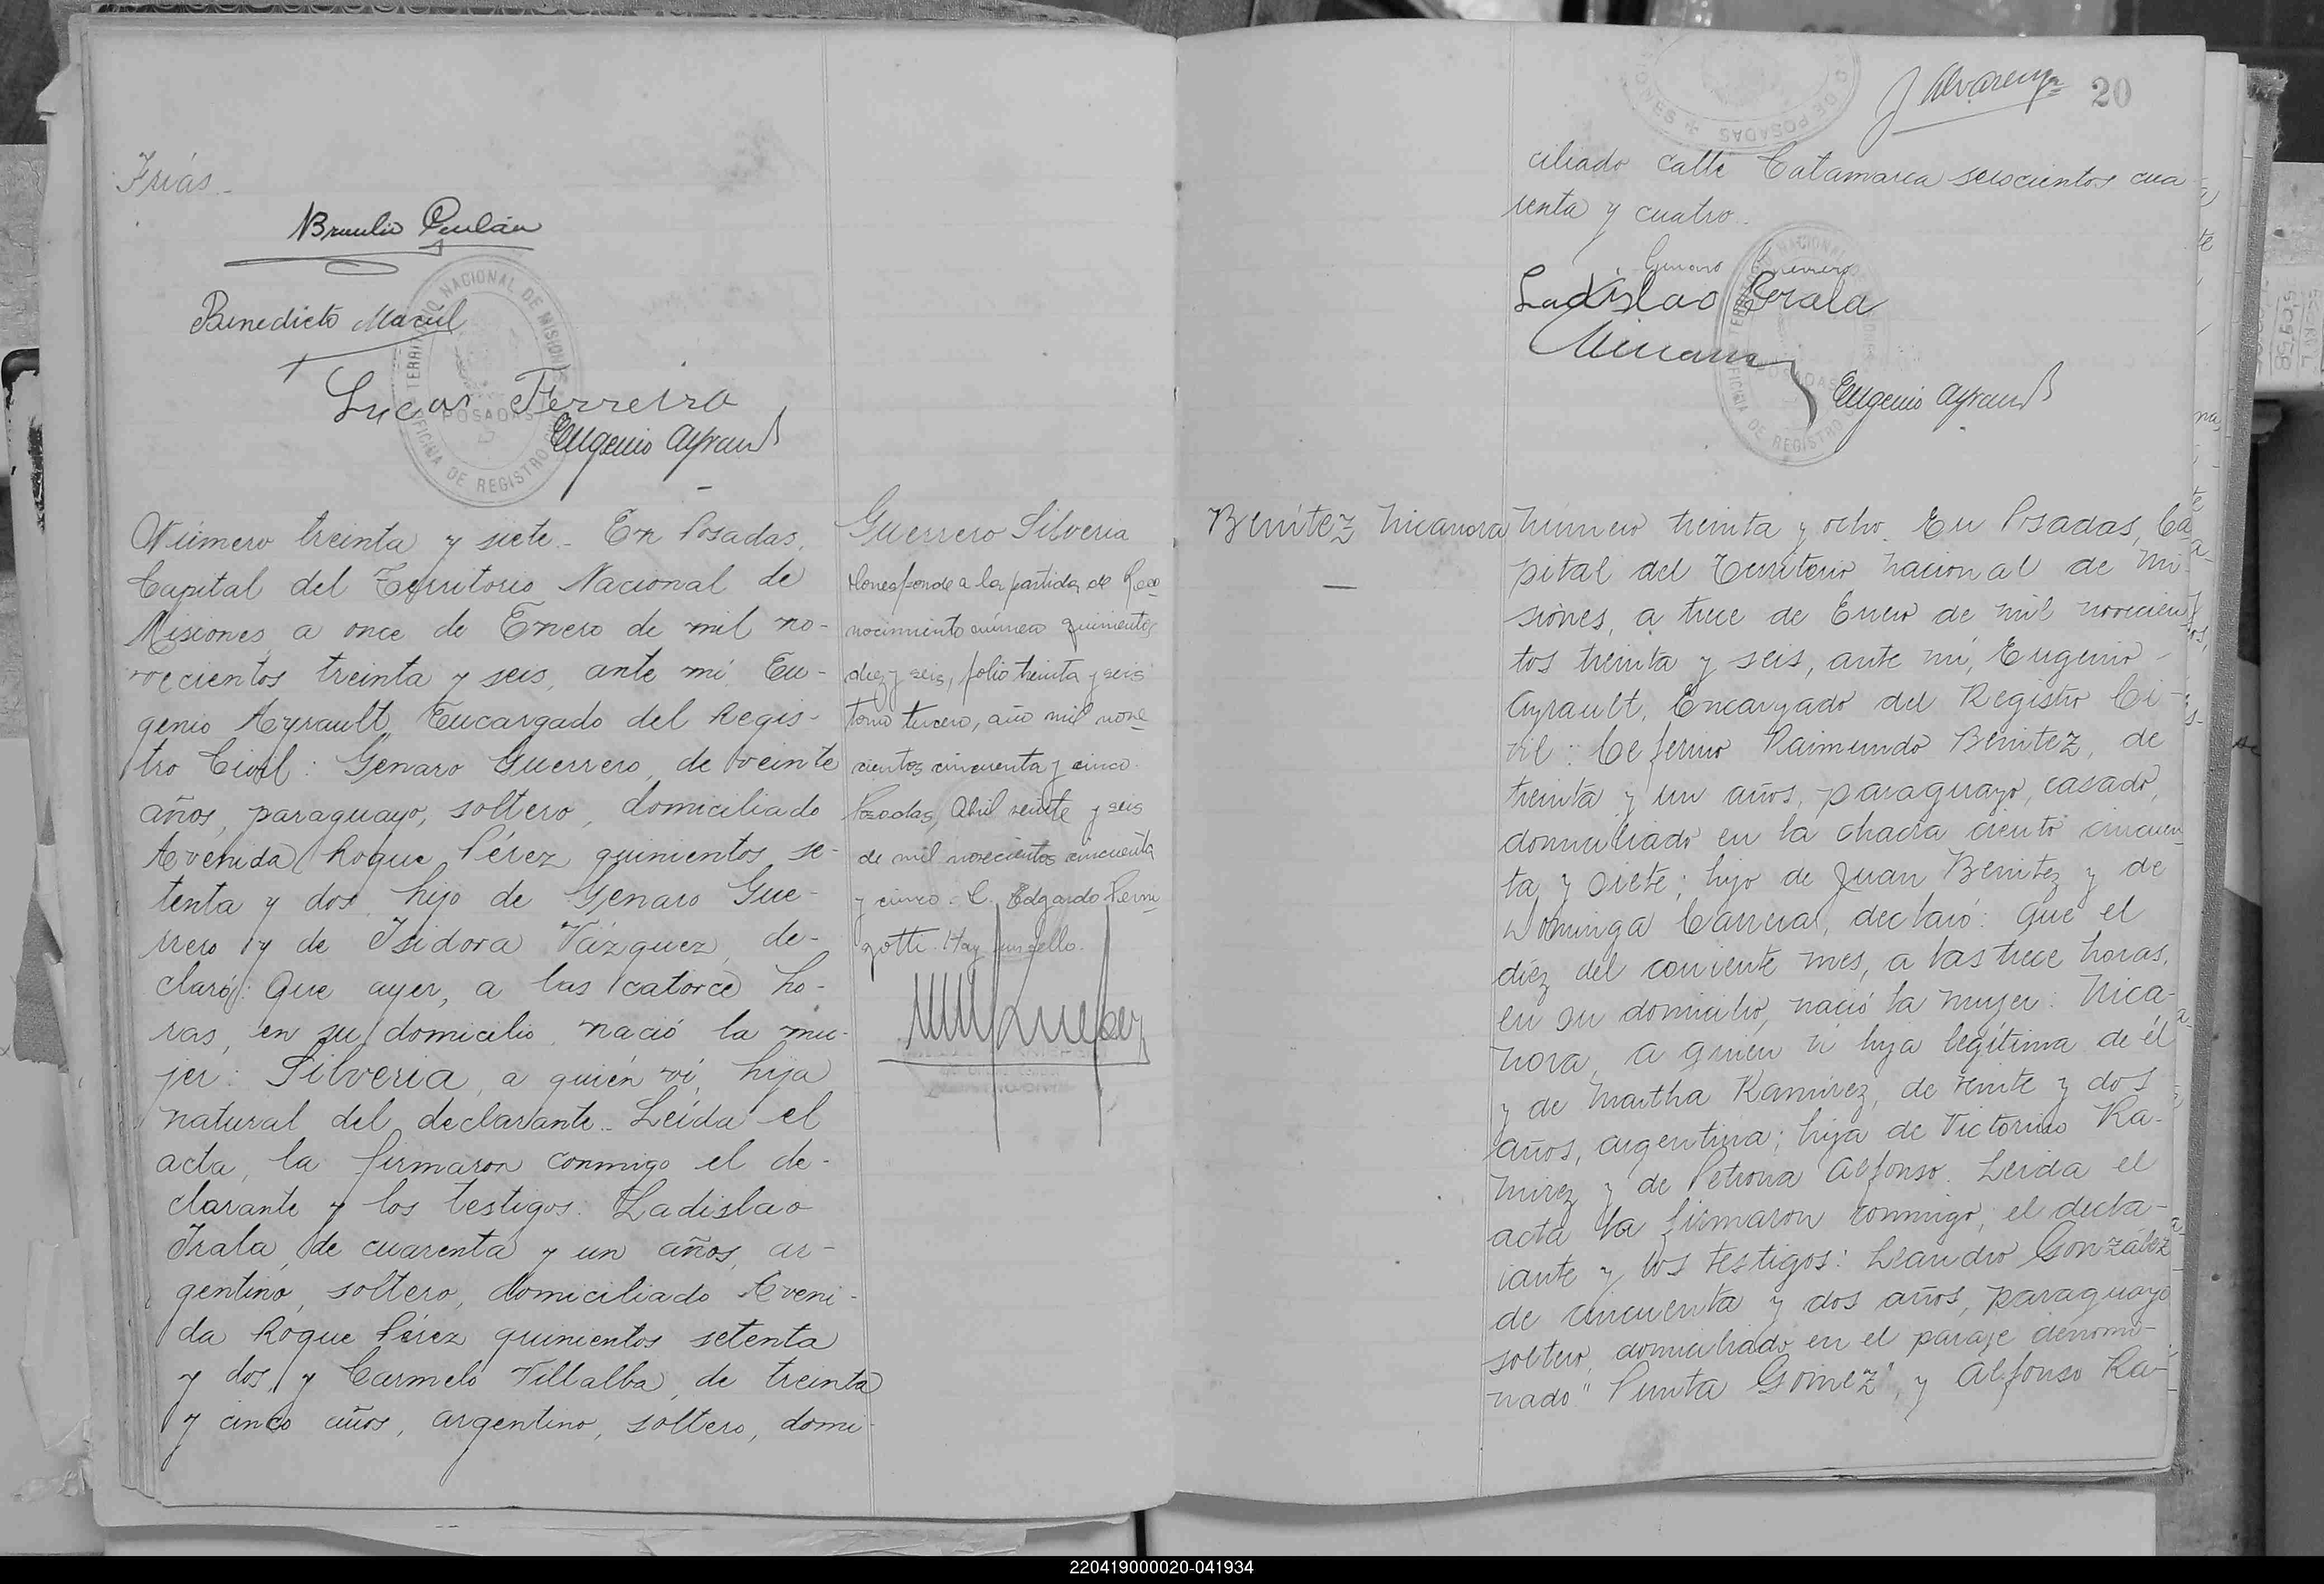 Frías.
Braulio
Benedicto Maciel
Lucas Ferreira
Eugenio Ayrault
TERRITORIO NACIONAL DE MISIONES
POSADAS
OFICINA DE REGISTRO
Número treinta y siete. En Posadas,
Capital del Territorio Nacional de
Misiones, a once de Enero de mil no-
vecientos treinta y seis, ante mí, Eu-
genio Ayrault, Encargado del Regis-
tro Civil: Genaro Guerrero, de veinte
años, paraguayo, soltero, domiciliado
Avenida Roque Pérez quinientos se-
tenta y dos, hijo de Genaro Gue-
rrero y de Isidora Vázquez, de-
claró: Que ayer, a las catorce ho-
ras, en su domicilio, nació la mu-
jer: Silveria, a quién ví, hija
natural del declarante. Leída el
acta, la firmaron conmigo el de-
clarante y los testigos: Ladislao
Irala, de cuarenta y un años, ar-
gentino, soltero, domiciliado Aveni-
da Roque Pérez quinientos setenta
y dos, y Carmelo Villalba, de treinta
y cinco años, argentino, soltero, domi-
Guerrero Silveria
Corresponde a la partida de Reco
nocimiento número quinientos
diez y seis, folio treinta y seis
tomo tercero, año mil nove
cientos cincuenta y cinco.
Posadas, Abril veinte y seis
de mil novecientos cincuenta
y cinco. C. Edgardo Perni
gotti. Hay un sello.
J Alvarenga
20
DE POSADAS
ciliado calle Catamarca seiscientos cua
renta y cuatro.
Genaro Guerrero
Ladislao Irala
Eugenio Ayrault
TERRITORIO NACIONAL
POSADAS
OFICINA DE REGISTRO
Benítez Nicanora
Número treinta y ocho. En Posadas, Ca
pital del Territorio Nacional de Mi
siones, a trece de Enero de mil novecien
tos treinta y seis, ante mí, Eugenio
Ayrault, Encargado del Registro Ci-
vil: Ceferino Raimundo Benítez, de
treinta y un años, paraguayo, casado,
domiciliado en la chacra ciento cincuen
ta y siete; hijo de Juan Benítez y de
Dominga Carrera, declaró: Que el
diez del corriente mes, a las trece horas,
en su domicilio, nació la mujer: Nica-
nora, a quien ví hija legítima de él
y de Martha Ramírez, de veinte y dos
años, argentina; hija de Victorino Ra-
mírez y de Petrona Alfonso. Leída el
acta la firmaron conmigo, el decla-
rante y los testigos: Leandro González
de cincuenta y dos años, paraguayo
soltero, domiciliado en el paraje denomi-
nado "Punta Gómez", y Alfonso Ra-
220419000020-041934